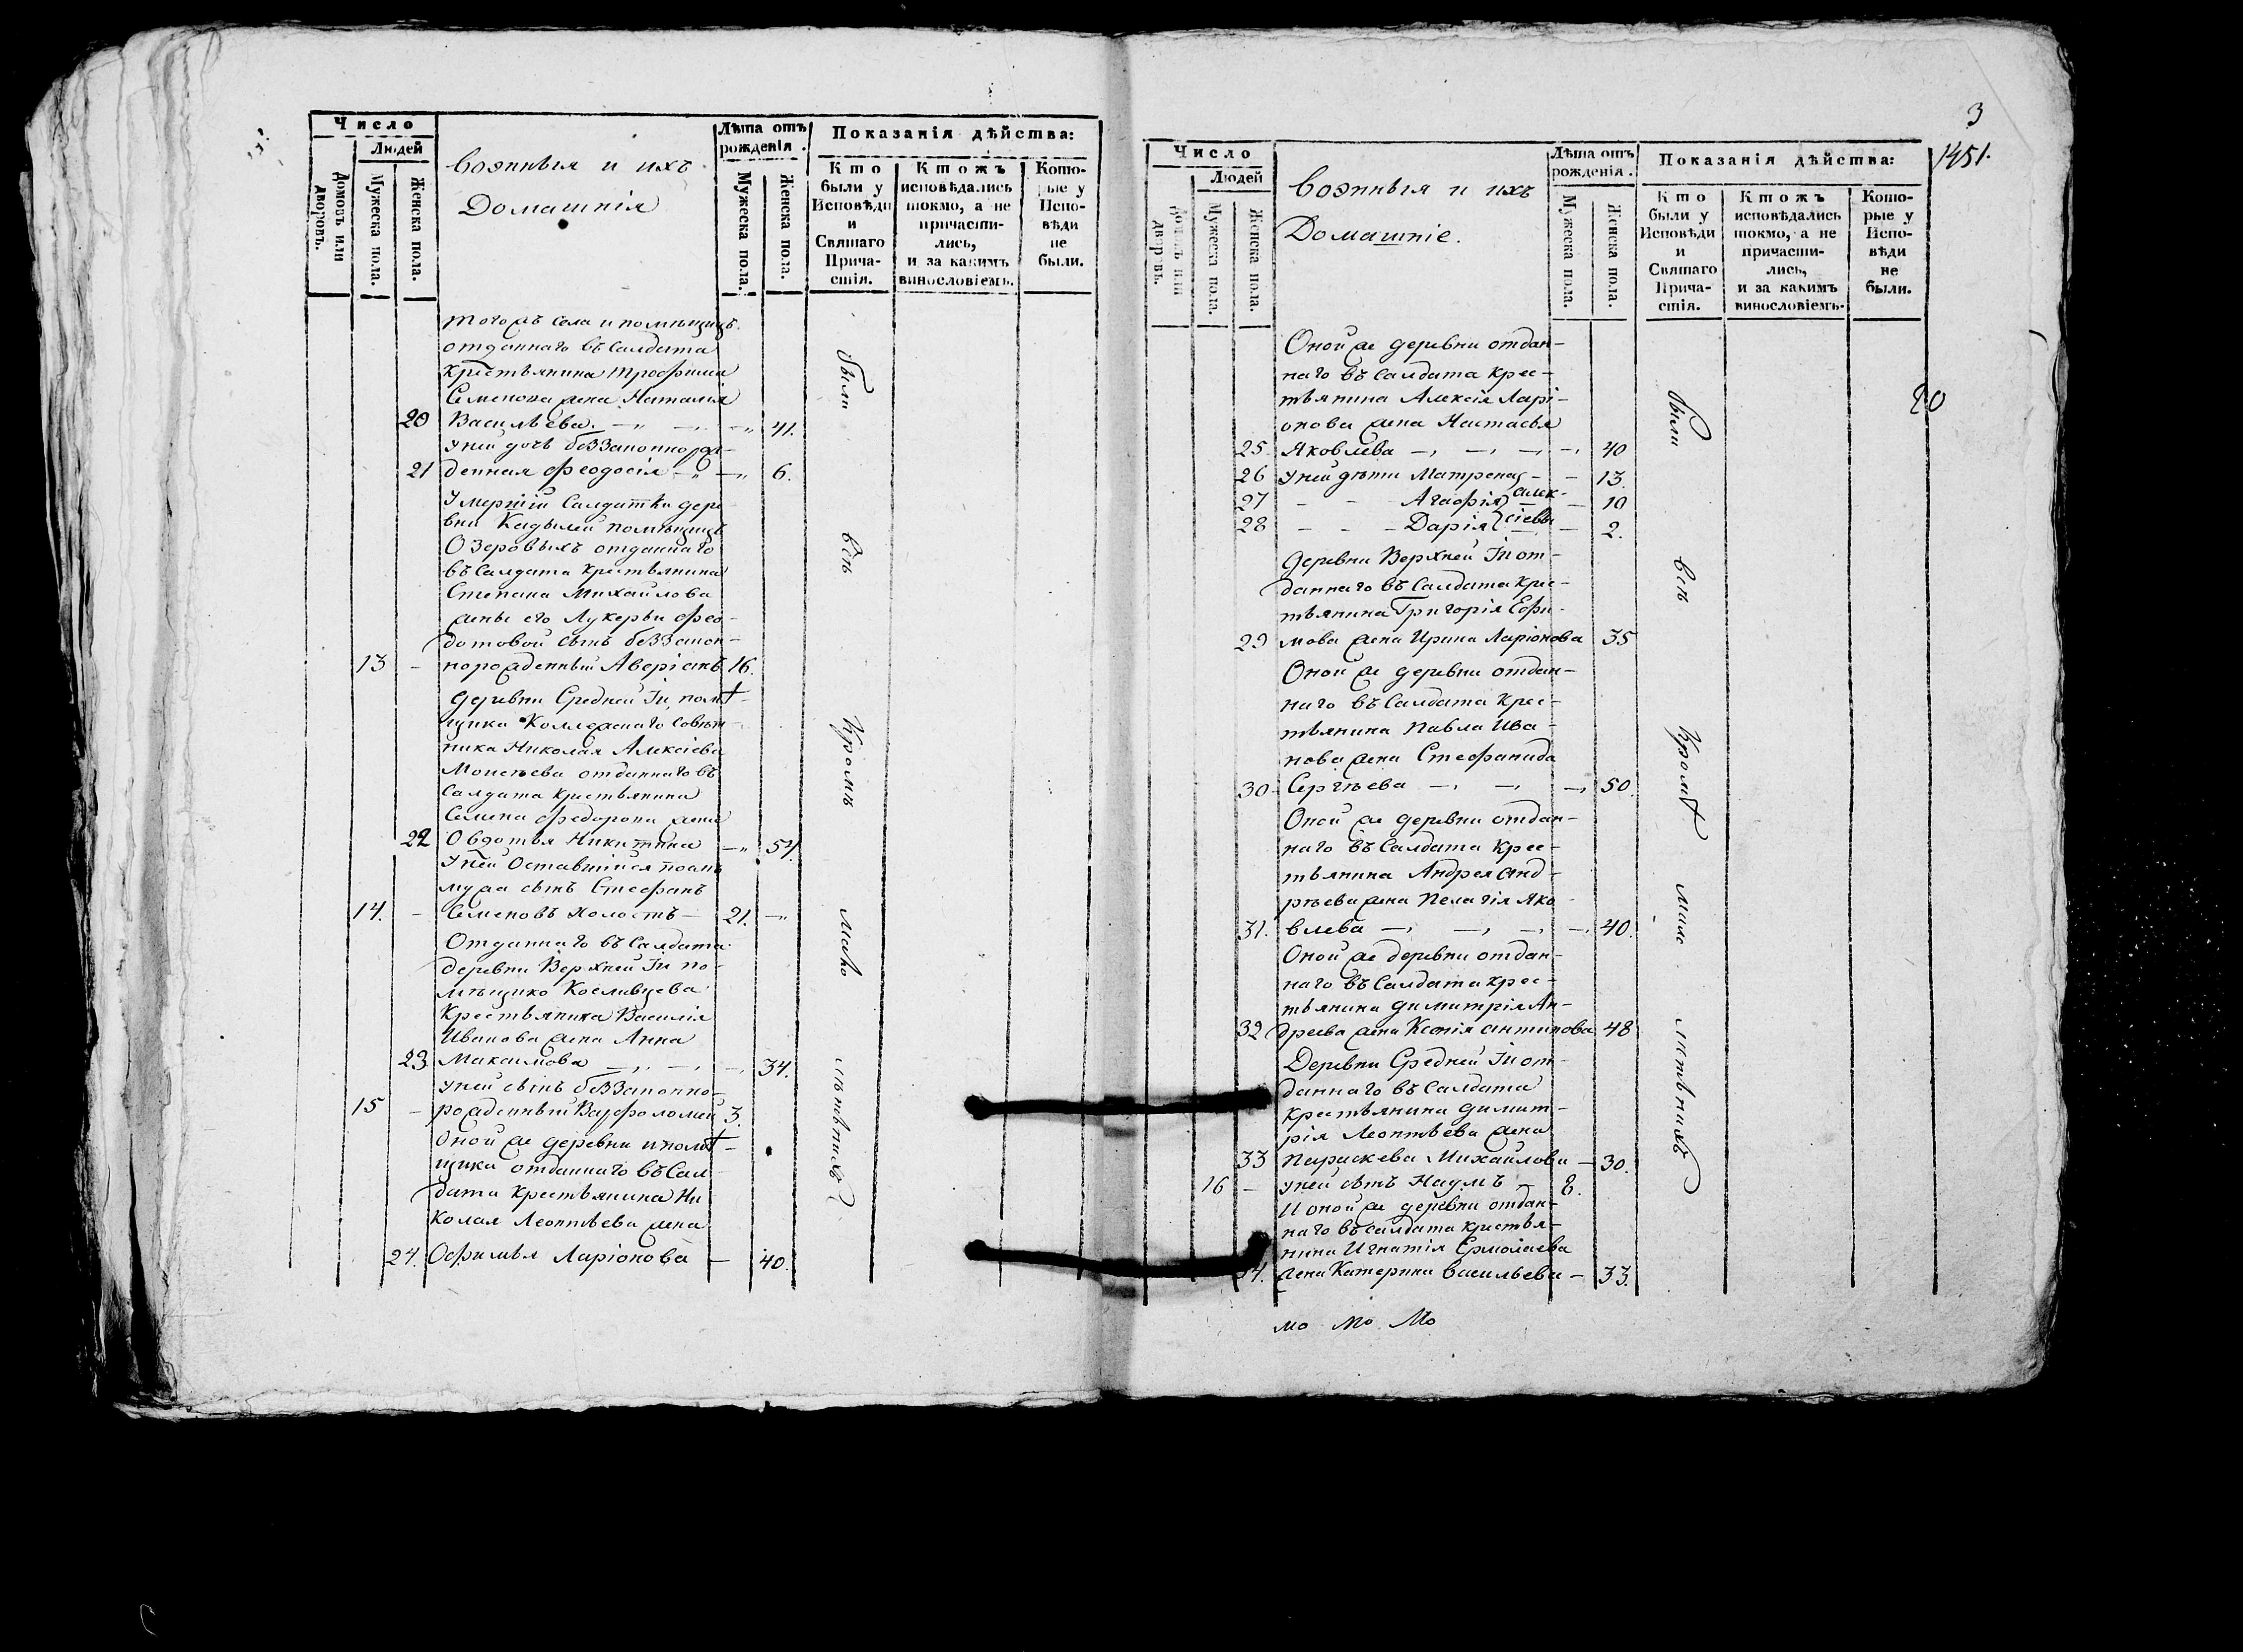 Число
Людей
Домовъ или дворовъ.
Мужеска пола.
Женска пола.
Военныя и ихъ
Домашнія
Лѣта отъ рожденія.
Мужеска пола.
Женска пола.
Показанія дѣйства:
Кто были у Исповѣди и Святаго Причастія.
Ктожъ исповѣдались токмо, а не причастились, и за какимъ винословіемъ.
Которые у Исповѣди не были.
тогожъ села и помѣщицъ
отданнаго въ Салдата
крестьянина Трофима
Семенова жена Наталія
20 Васильева 41.
у ней дочь беззаконнорож-
21 денная Феодосія 6.
Умершій Салдатки дере
вни Кадылей помѣщицъ
Озеровыхъ отданнаго
въ Салдата крестьянина
Степана Михайлова
жены его Лукерьи Фео-
дотовой сынъ беззакон-
13 - норожденный Аверіанъ 16.
деревни Средней Іи, помѣ-
щика Коллежскаго Совѣт-
ника Николая Алексіева
отданнаго въ
Салдата крестьянина
Семена Федорова жена
22 Овдотья Никитина 54.
у ней Оставшійся
мужа сынъ Стефанъ
14. - Семеновъ холостъ - 21.
Отданнаго въ Салдата
деревни Верхней Іи по-
мѣщико Косливцева
Крестьянина Василія
Иванова жена Анна
23. Максимова 34.
у ней сынъ беззаконно-
15 - рожденный Варфоломей 3.
Оной же деревни и помѣ-
щика отданнаго въ Сал-
дата Крестьянина Ни
колая Леонтьева жена
24. Офимья Ларіонова - 40.
были
всѣ
Кромѣ
мало
лѣтныхъ
3
1451.
20
Число
Людей
Домовъ или дворовъ.
Мужеска пола.
Женска пола.
Военныя и ихъ
Домашніе.
Лѣта отъ рожденія.
Мужеска пола.
Женска пола.
Показанія дѣйства:
Кто были у Исповѣди и Святаго Причастія.
Ктожъ исповѣдались токмо, а не причастились, и за какимъ винословіемъ.
Которые у Исповѣди не были.
Оной же деревни отдан-
наго въ Салдата крес-
тьянина Алексія Ларі-
онова жена Настасья
25. Яковлева 40
26 у ней дѣти Матрена 13.
27 - - Агафія Алек- 10
28 - - - Дарія сіевы 2.
Деревни Верхней Іи от-
даннаго въ Салдата крес-
тьянина Григорія Ефи-
29 мова жена Ирина Ларіонова 35
Оной же деревни отдан-
наго въ Салдата крес-
тьянина Павла Ива-
нова жена Стефанида
30. Сергѣева 50.
Оной же деревни отдан-
наго въ Салдата крес-
тьянина Андрея Анд-
рѣева жена Пелагія Яко-
31. влева 40.
Оной же деревни отдан-
наго въ Салдата крес-
тьянина Димитрія Ан-
32 дреева жена Ксенія Антипова 48
Деревни Средней Іи от-
даннаго въ Салдата
крестьянина Димит-
рія Леонтьева жена
33 Параскева Михайлова - 30.
16 - у ней сынъ Наумъ - 8.
И оной же деревни отдан-
наго въ салдата крестья-
нина Игнатія Ермолаева
34. жена Катерина Васильева - 33.
были
всѣ
Кромѣ
мало
лѣтныхъ